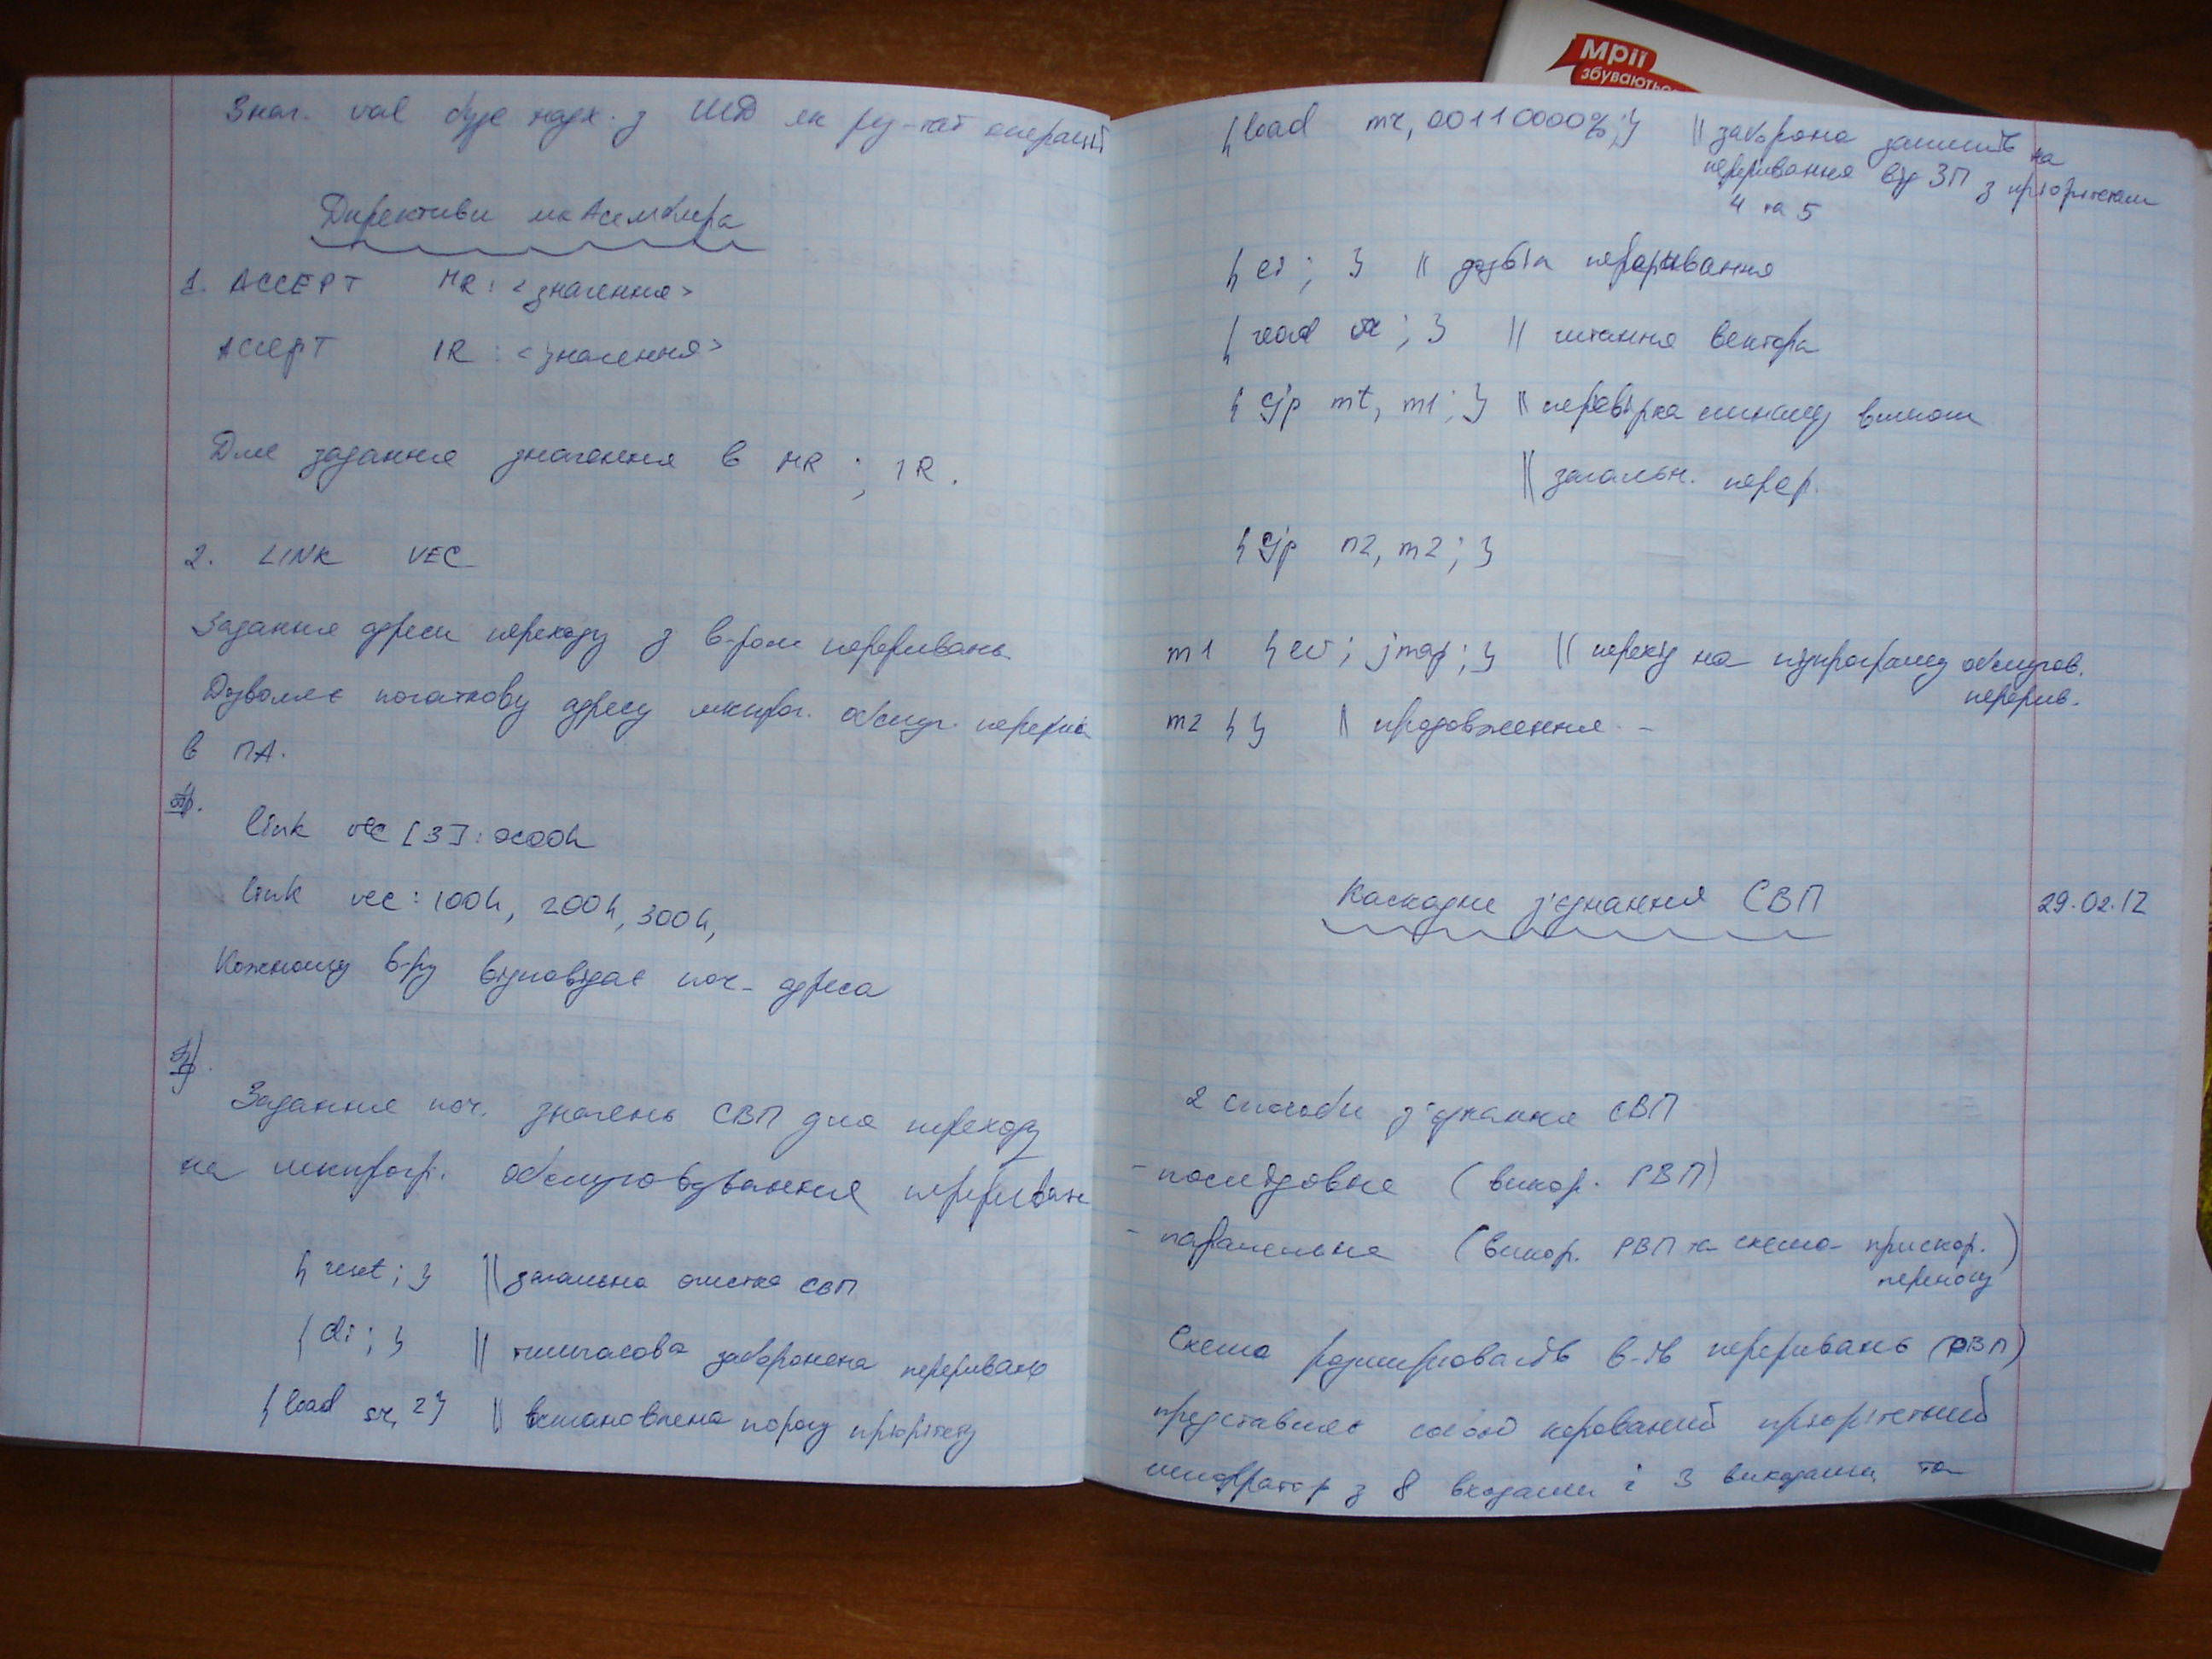 Знач. val буде надх. з ШД як рез-тат операції
Директиви мкАсемблера
1. ACCEPT MR: <значення>
ACCEPT IR: <значення>
Для задання значення в MR ; IR.
2. LINK VEC
Задання адреси переходу з в-ром переривань
Дозволяє початкову адресу мкпрог. обслуг. перерив
в ПА.
Пр.
link vec [3]: 0C00h
link vec: 100h, 200h, 300h,
Кожному в-ру відповідає поч. адреса
Пр.
Задання поч. значень СВП для переходу
на мкпрогр. обслуговування переривань
{ reset; } || загальна очистка СВП
{ di; } || тимчасова заборонена переривань
{ load sr, 2} || встановлена порогу пріорітету
{ load mr, 00110000%;} || заборона запитів на
переривання від ЗП з пріорітетами
4 та 5
{ ei; } || дозвіл переривання
{ read vr; } || читання вектора
{ cjp mt, m1; } || перевірка сигналу вимоги
|| загальн. перер.
{ cjp n2, m2; }
m1 { ev; jmap; } || перехід на підпрограму обслугов.
перерив.
m2 { } || продовження.
Каскадне з'єднання СВП
29.02.12
2 способи з'єднання СВП
- послідовне (викор. РВП)
- паралельне (викор. РВП та схема прискор.
переносу)
Схема розширювачів в-ів переривань (РВП)
представляє собою керований пріорітетний
шифратор з 8 входами і 3 виходами та
Мрії
збуваються